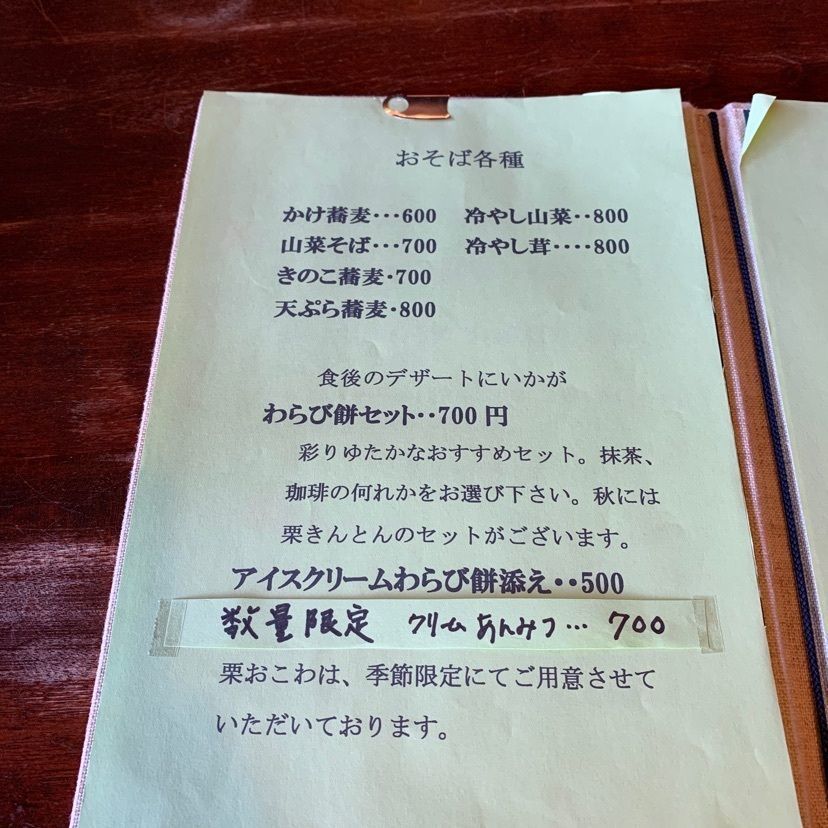 おそば各種
かけ蕎麦･･･600　冷やし山菜･･800
山菜そば･･･700　冷やし茸････800
きのこ蕎麦･700
天ぷら蕎麦･800
食後のデザートにいかが
わらび餅セット･･700 円
彩りゆたかなおすすめセット。抹茶、
珈琲の何れかをお選び下さい。秋には
栗きんとんのセットがございます。
アイスクリームわらび餅添え･･500
数量限定 クリームあんみつ… 700
栗おこわは、季節限定にてご用意させて
いただいております。